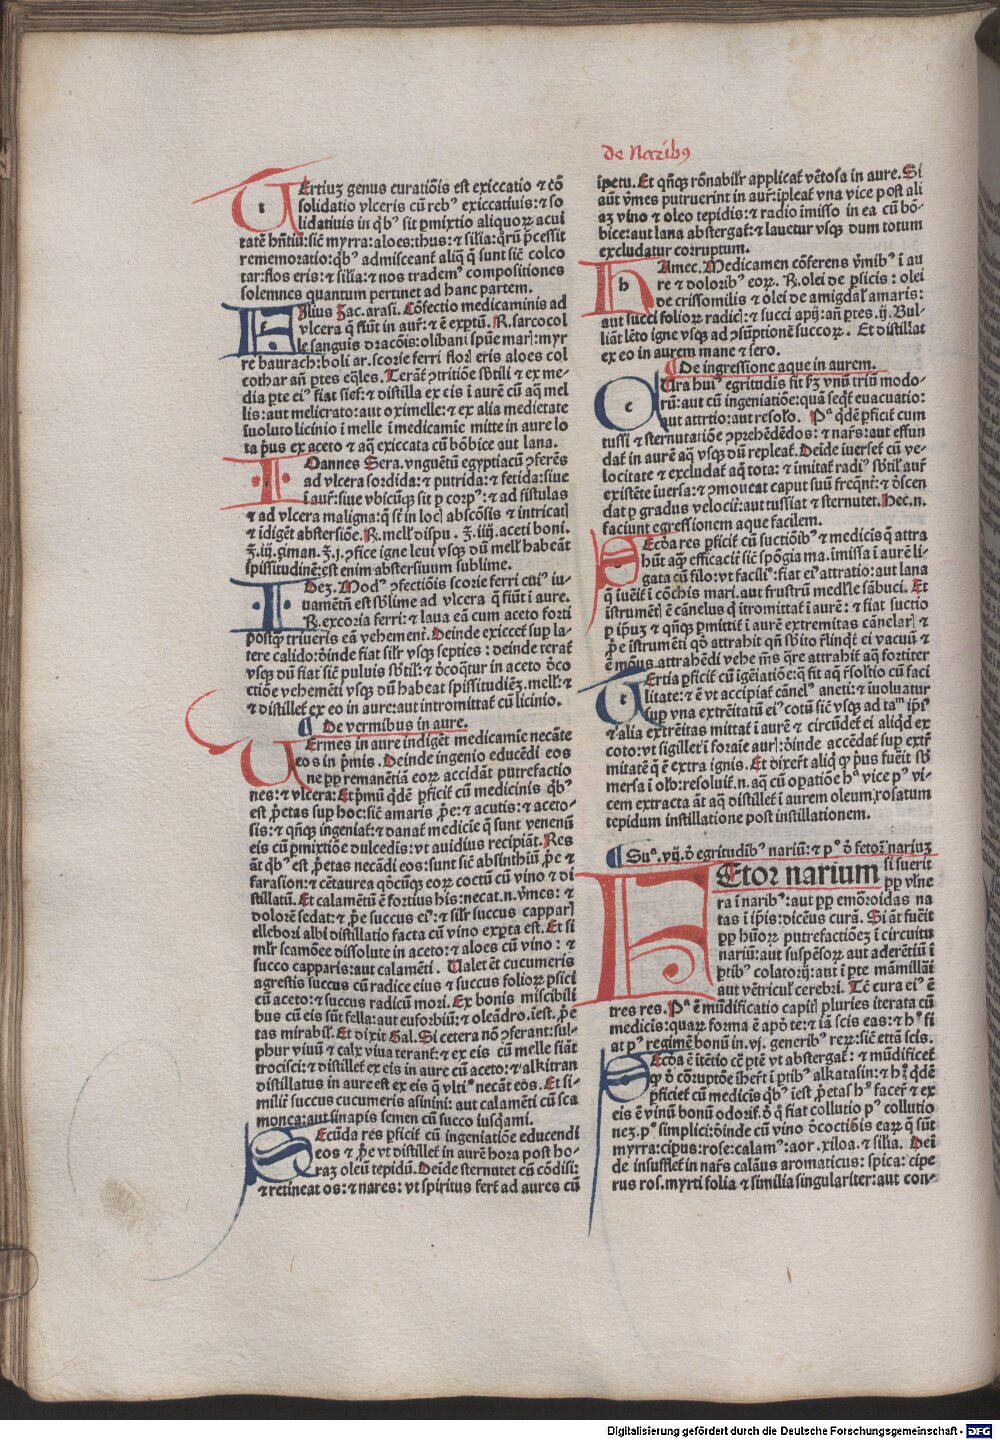 de Narib9
tErtiuz genus curatiōis est exiccatio ⁊ cō
solidatio vlceris cū reb⁹ exiccatiuis: ⁊ so
lidatiuis in q̄b⁹ sit ꝑmixtio aliquoꝝ acui
tatē hn̄tiū: sic̄ myrra: aloes: thus: ⁊ silia: qrū ꝓcessit
rememoratio: q̄b⁹ admisceant̄ aliq̄ q̄ sunt sic̄ colco
tar: flos eris: ⁊ silia: ⁊ nos tradem⁹ compositiones
solemnes quantum pertinet ad hanc partem.
fIlius Zac. arasi. Cōfectio medicaminis ad
vlcera q̄ fiūt in aur̄: ⁊ ē exp̄tū. ℞. sarcocol
le sanguis dracōis: olibani spūe mar̄: myr
re baurach: boli ar. scorie ferri flor̄ eris aloes col
cothar an̄ ꝑtes eq̄les. Terāt̄ ꝯtritiōe sb̄tili ⁊ ex me⸗
dia ꝑte ei⁹ fiat sief: ⁊ distilla ex eis ī aurē cū aq̄ mel
lis: aut melicrato: aut oximelle: ⁊ ex alia medietate
īuoluto licinio ī melle ī medicamīe mitte in aure lo
ta p̄us ex aceto ⁊ aq̄ exiccata cū bōbice aut lana.
IOannes Sera. vnguētū egyptiacū ꝯferēs
ad vlcera sordida: ⁊ putrida: ⁊ fetida: siue
ī aur̄: siue vbicūq̄ sit ꝑ corp⁹: ⁊ ad fistulas
⁊ ad vlcera maligna: q̄ st̄ in loc̄ abscōsis ⁊ intricat̄
⁊ idigēt abstersiōe. ℞. mell̄ dispu. ℥. iiij. aceti boni.
℥. iij. ꝟiman. ℥. j. ꝯfice igne leui vsq̄ dū mell̄ habeāt
spissitudinē: est enim abstersiuum sublime.
IDez. Mod⁹ ꝯfectiōis scorie ferri cui⁹ iu⸗
uamētū est sb̄lime ad vlcera q̄ fiūt ī aure.
℞. excoria ferri: ⁊ laua eā cum aceto forti
postq̄ triueris eā vehement̄. Deinde exiccet̄ sup la⸗
tere calido: ō̄inde fiat sil̄r vsq̄ septies: deinde terat̄
vsq̄ dū fiat sic̄ puluis sb̄til̄: ⁊ ō̄coq̄tur in aceto ō̄co
ctiōe vehemēti vsq̄ dū habeat spissitudiēz. mell̄: ⁊
⁊ distillet̄ ex eo in aure: aut intromittat̄ cū licinio.
¶ De vermibus in aure.
vErmes in aure indigēt medicamīe necāte
eos in p̄mis. Deinde ingenio educēdi eos
ne ꝓp̄ remanētiā eoꝝ accidāt putrefactio
nes: ⁊ vlcera: Et p̄mū q̄dē ꝑficit̄ cū medicinis q̄b⁹
est ꝓ̄etas sup hoc: sic̄ amaris ꝓ̄e: ⁊ acutis: ⁊ aceto⸗
sis: ⁊ qn̄q̄ ingeniat̄: ⁊ danat̄ medicīe q̄ sunt venenū
eis cū ꝑmixtiōe dulcedis: vt auidius recipiāt. Res
āt q̄b⁹ est ꝓ̄etas necādi eos: sunt sic̄ absinthiū ꝓ̄e ⁊
farasion: ⁊ cētaurea qōcūq̄ eoꝝ coctū cū vino ⁊ di
stillatū. Et calamētū ē fortius his: necat. n. v̄mes: ⁊
dolorē sedat: ⁊ ꝓ̄e succus ei⁹: ⁊ sil̄r succus cappar̄
ellebori albi distillatio facta cū vino exp̄ta est. Et si
ml̄r scamōee dissolute in aceto: ⁊ aloes cū vino: ⁊
succo capparis: aut calamēti. Valet ēt cucumeris
agrestis succus cū radice eius ⁊ succus folioꝝ ꝑsici
cū aceto: ⁊ succus radicū mori. Ex bonis miscibili
bus cū eis sūt fella: aut euforbiū: ⁊ oleādro. iest. ꝓ̄e
tas mirabil̄. Et dixit Gal. Si cetera nō ꝯferant: sul⸗
phur viuū ⁊ calx viua terant̄: ⁊ ex eis cū melle fiāt
trocisci: ⁊ distillet̄ ex eis in aure cū aceto: ⁊ alkitran
distillatus in aure est ex eis q̄ vlti⁹ necāt eos. Et si⸗
milit̄ succus cucumeris asinini: aut calamēti cū sca
monea: aut sinapis semen cū succo iusq̄ami.
sEcūda res ꝑficit̄ cū ingeniatiōe educendi
eos ⁊ ꝓ̄e vt distillet̄ in aurē hora post ho⸗
raz oleū tepidū. Deīde sternutet cū cōdisi:
⁊ retineat os: ⁊ nares: vt spiritus ferat̄ ad aures cū
īpetu. Et qn̄q̄ rōnabilr̄ applicat̄ vētosa in aure. Si
aūt v̄mes putruerint in aur̄: ipleat̄ vna vice post ali
az vino ⁊ oleo tepidis: ⁊ radio īmisso in ea cū bō⸗
bice: aut lana abstergat̄: ⁊ lauetur vsq̄ dum totum
excludatur corruptum.
hAmec. Medicamen cōferens v̄mib⁹ ī au
re ⁊ dolorib⁹ eoꝝ. ℞. olei de ꝑsicis: olei
de crissomilis ⁊ olei de amigdal̄ amaris:
aut succi folioꝝ radic̄: ⁊ succi apij: an̄ ꝑtes. ij. Bul⸗
liāt lēto igne vsq̄ ad ꝯsūptionē succoꝝ. Et distillat̄
ex eo in aurem mane ⁊ sero.
¶ De ingressione aque in aurem.
cUra hui⁹ egritudis fit ẜm vnū triū modo⸗
rū: aut cū ingeniatiōe: quā seq̄t̄ euacuatio:
aut attr̄tio: aut resolo. Pᵃ q̄dē ꝑficit̄ cum
tussi ⁊ sternutatiōe ꝯprehēdēdos: ⁊ nar̄s: aut effun
dat̄ in aurē aq̄ vsq̄ dū repleat̄. Deide iuerset̄ cū ve⸗
locitate ⁊ excludat̄ aq̄ tota: ⁊ imitat̄ radi⁹ sb̄til̄ aur̄
existēte iuersa: ⁊ ꝯmoueat caput suū freq̄nt̄: ⁊ ō̄scen
dat ꝑ gradus velocit̄: aut tussiat ⁊ sternutet. Hec. n.
faciunt egressionem aque facilem.
sEcōa res ꝑficit̄ cū suctiōib⁹ ⁊ medicis q̄ attra
hūt aq̄ efficacit̄ sic̄ spōgia ma. īmissa ī aurē li⸗
gata cū filo: vt facili⁹: fiat ei⁹ attratio: aut lana
q̄ iueīt̄ ī cōchis mari. aut frustrū medl̄le sābuci. Et
īstrumēt̄ ē cānelus q̄ itromittat̄ ī aurē: ⁊ fiat suctio
ꝑ ip̄uz ⁊ qn̄q̄ ꝑmittit̄ ī aurē extremitas cānelar̄ ⁊
ꝓ̄e īstrumēti qō attrahit qn̄ sb̄ito rl̄inq̄t̄ ei vacuū ⁊
ē mōus attrahēdi vehe m̄s q̄re attrahit̄ aq̄ fortiter
tErtia ꝑficit̄ cū igēiatiōe: q̄ fit aq̄ rſolꝉio cū faci
litate: ⁊ ē vt accipiat̄ cānel⁹ aneti: ⁊ iuoluatur
sup vna extrēitatū ei⁹ cotū sic̄ vsq̄ ad taᵐ ip̄i⁹
⁊ alia extrēitas mittat̄ ī aurē ⁊ circūdet̄ ei aliq̄d ex
coto: vt sigillet̄ ī foraīe aur̄: ō̄inde accēdat̄ sup extr̄
mitatē q̄ ē extra ignis. Et dixer̄t aliq̄ q̄ p̄us fuēit sb̄
mersa ī olō: resoluit̄. n. aq̄ cū oꝑatiōe hᵃ vice p⁹ vi⸗
cem extracta āt aq̄ distillet̄ ī aurem oleum rosatum
tepidum instillatione post instillationem.
¶ Suᵃ. vij. ō̄ egritudib⁹ nariū: ⁊ p⁰ ō̄ fetor̄ nariuz
fEtor narium si fuerit
ꝓp̄ vlne
ra ī narib⁹: aut ꝓp̄ emōroidas na
tas ī ip̄is: dicēus curā. Si āt fuēit
ꝓp̄ hūoꝝ putrefactiōez ī circuitu
nariū: aut suspēsoꝝ aut aderētiū ī
ꝑtib⁹ colatorij: aut ī ꝑte māmillāi
aut vētricul̄ cerebri. Tē cura ei⁹ ē
tres res. Pᵃ ē mūdificatio capit̄ pluries iterata cū
medicis: quaꝝ forma ē apō te: ⁊ iā scis eas: ⁊ h⁹ fi
at p⁹ regimē bonū in. vj. generib⁹ reꝝ: sic̄ ettā scis.
sEcōa ē itētio cē ꝑtē vt abstergat̄: ⁊ mūdificet̄
qō ō̄ cōruptōe iheſ̄t ī ꝑtib⁹ alkatasin: ⁊ h⁹ q̄dē
ꝑficiet̄ cū medicis q̄b⁹ iest ꝓ̄etas h⁹ facer̄ ⁊ ex
eis ē vinū bonū odorif. ō̄ q̄ fiat collutio p⁹ collutio
nez. p⁹ simplici: ō̄inde cū vino ō̄coctiōis eaꝝ q̄ sūt
myrra: cipus: rose: calam⁹: aor. xiloa. ⁊ silia. Dei
de insufflet̄ in nar̄s calāus aromaticus: spica: cipe
rus ros. myrti folia ⁊ similia singulariter: aut con⸗
Digitalisierung gefördert durch die Deutsche Forschungsgemeinschaft - DFG